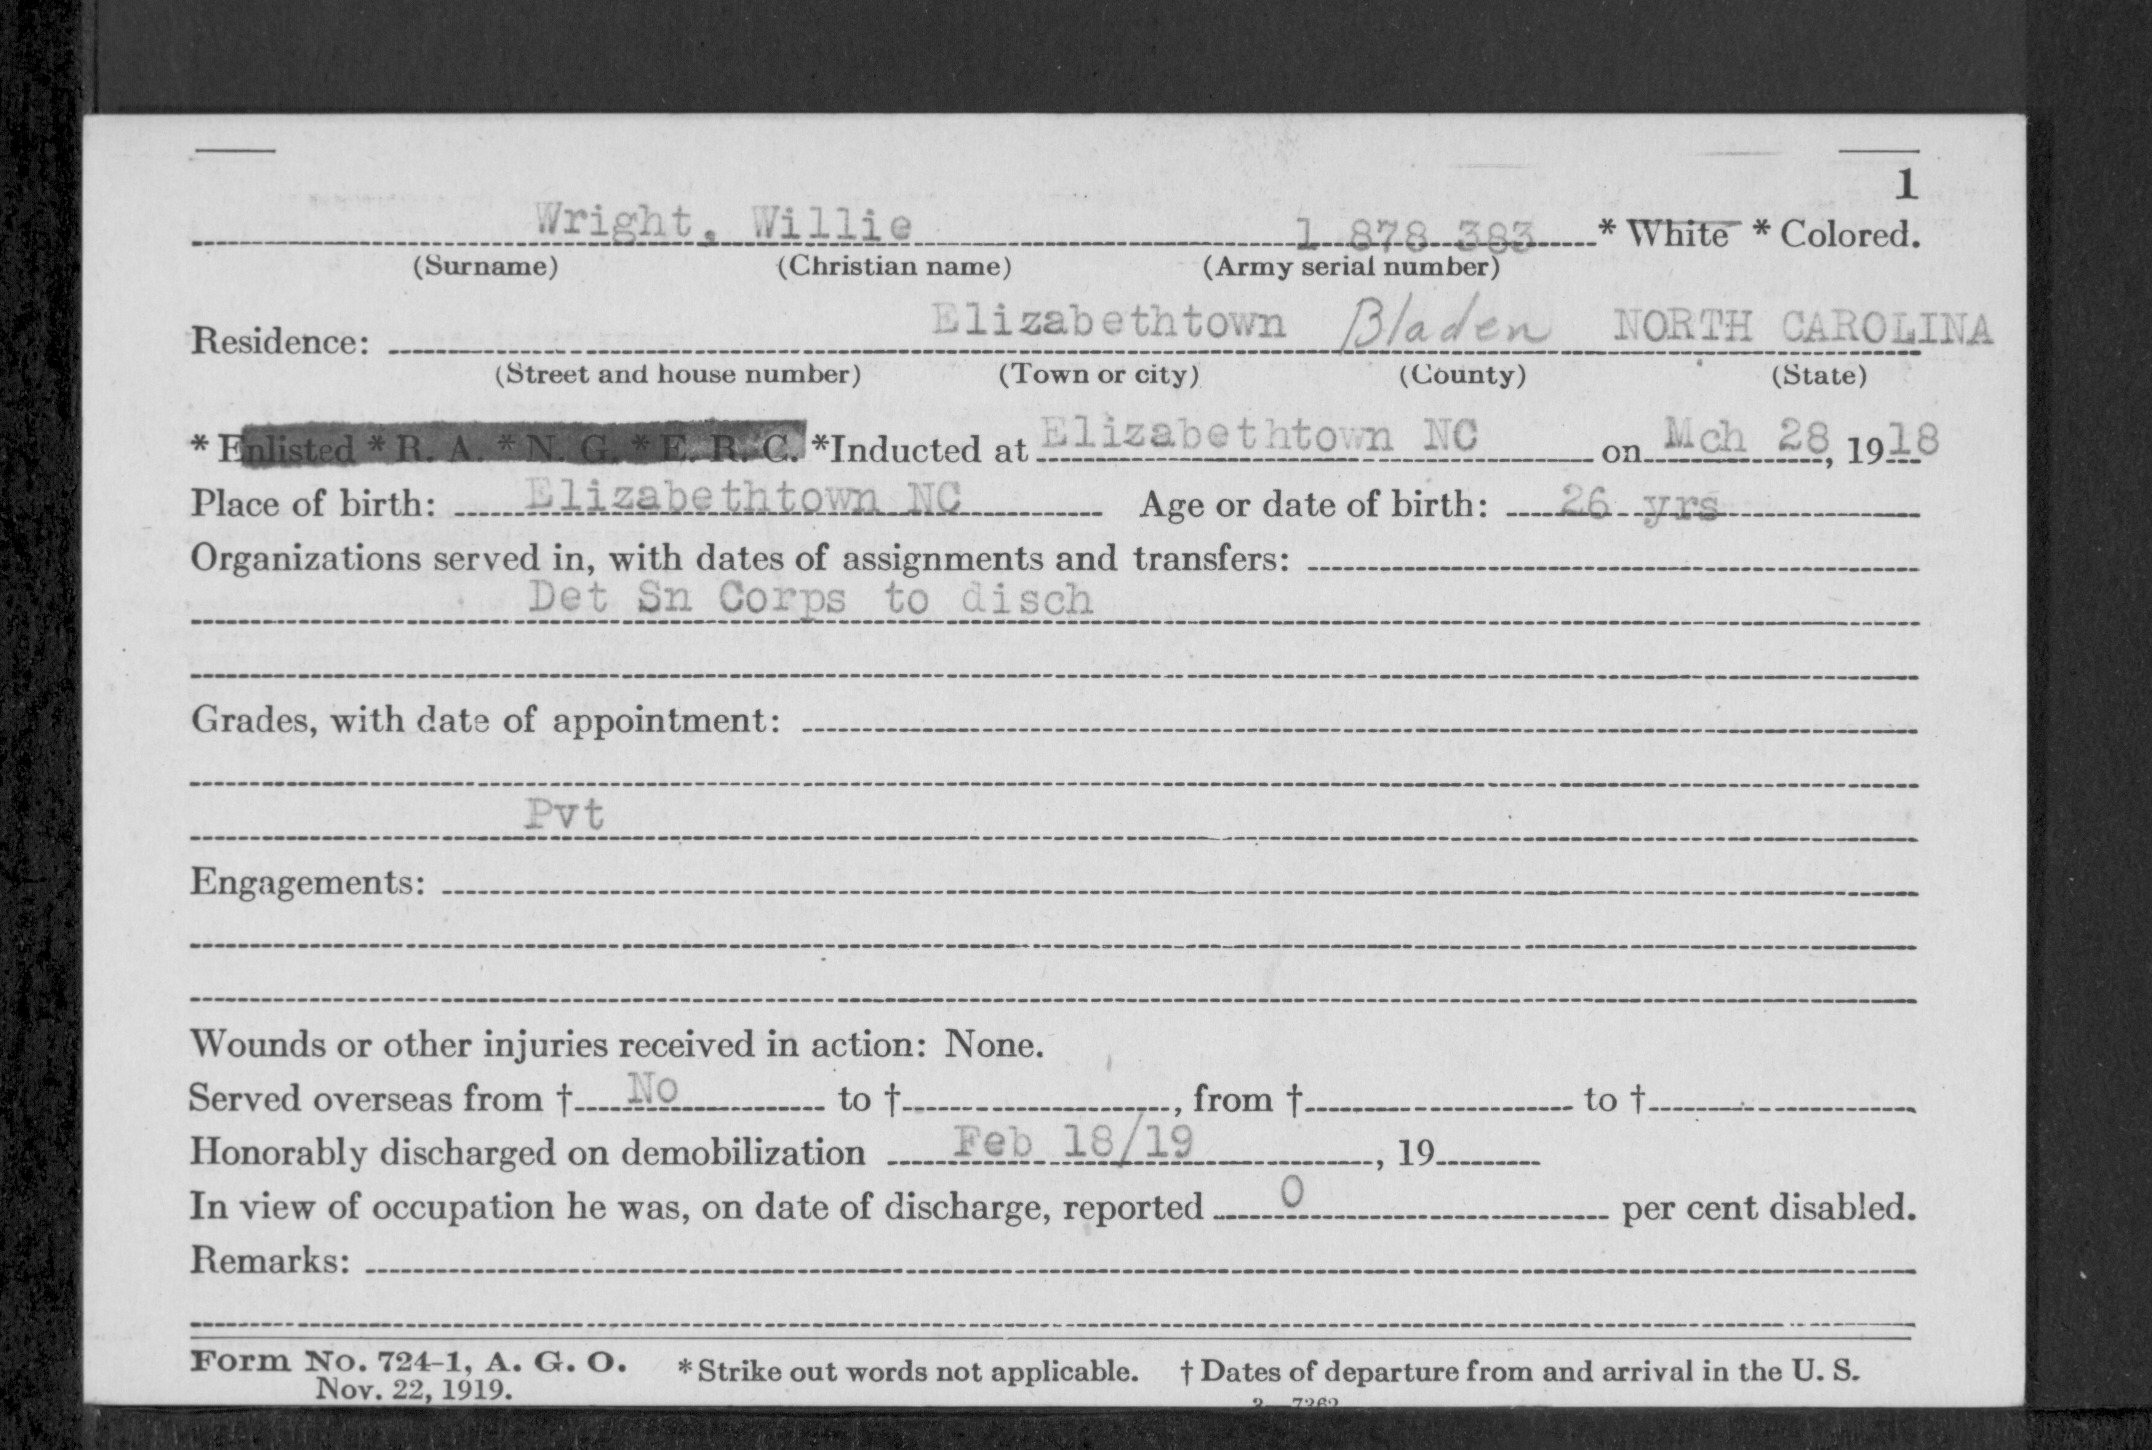 1
Wright, Willie 1 878 383 * White * Colored.
(Surname) (Christian name) (Army serial number)
Residence: Elizabethtown Bladen NORTH CAROLINA
(Street and house number) (Town or city) (County) (State)
* Enlisted * R. A. * N. G. * E. R. C. *Inducted at Elizabethtown NC on Mch 28, 1918
Place of birth: Elizabethtown NC Age or date of birth: 26 yrs
Organizations served in, with dates of assignments and transfers:
Det Sn Corps to disch
Grades, with date of appointment:
Pvt
Engagements:
Wounds or other injuries received in action: None.
Served overseas from † No to †, from † to †
Honorably discharged on demobilization Feb 18/19, 19
In view of occupation he was, on date of discharge, reported 0 per cent disabled.
Remarks:
Form No. 724-1, A. G. O. * Strike out words not applicable. † Dates of departure from and arrival in the U. S.
Nov. 22, 1919.